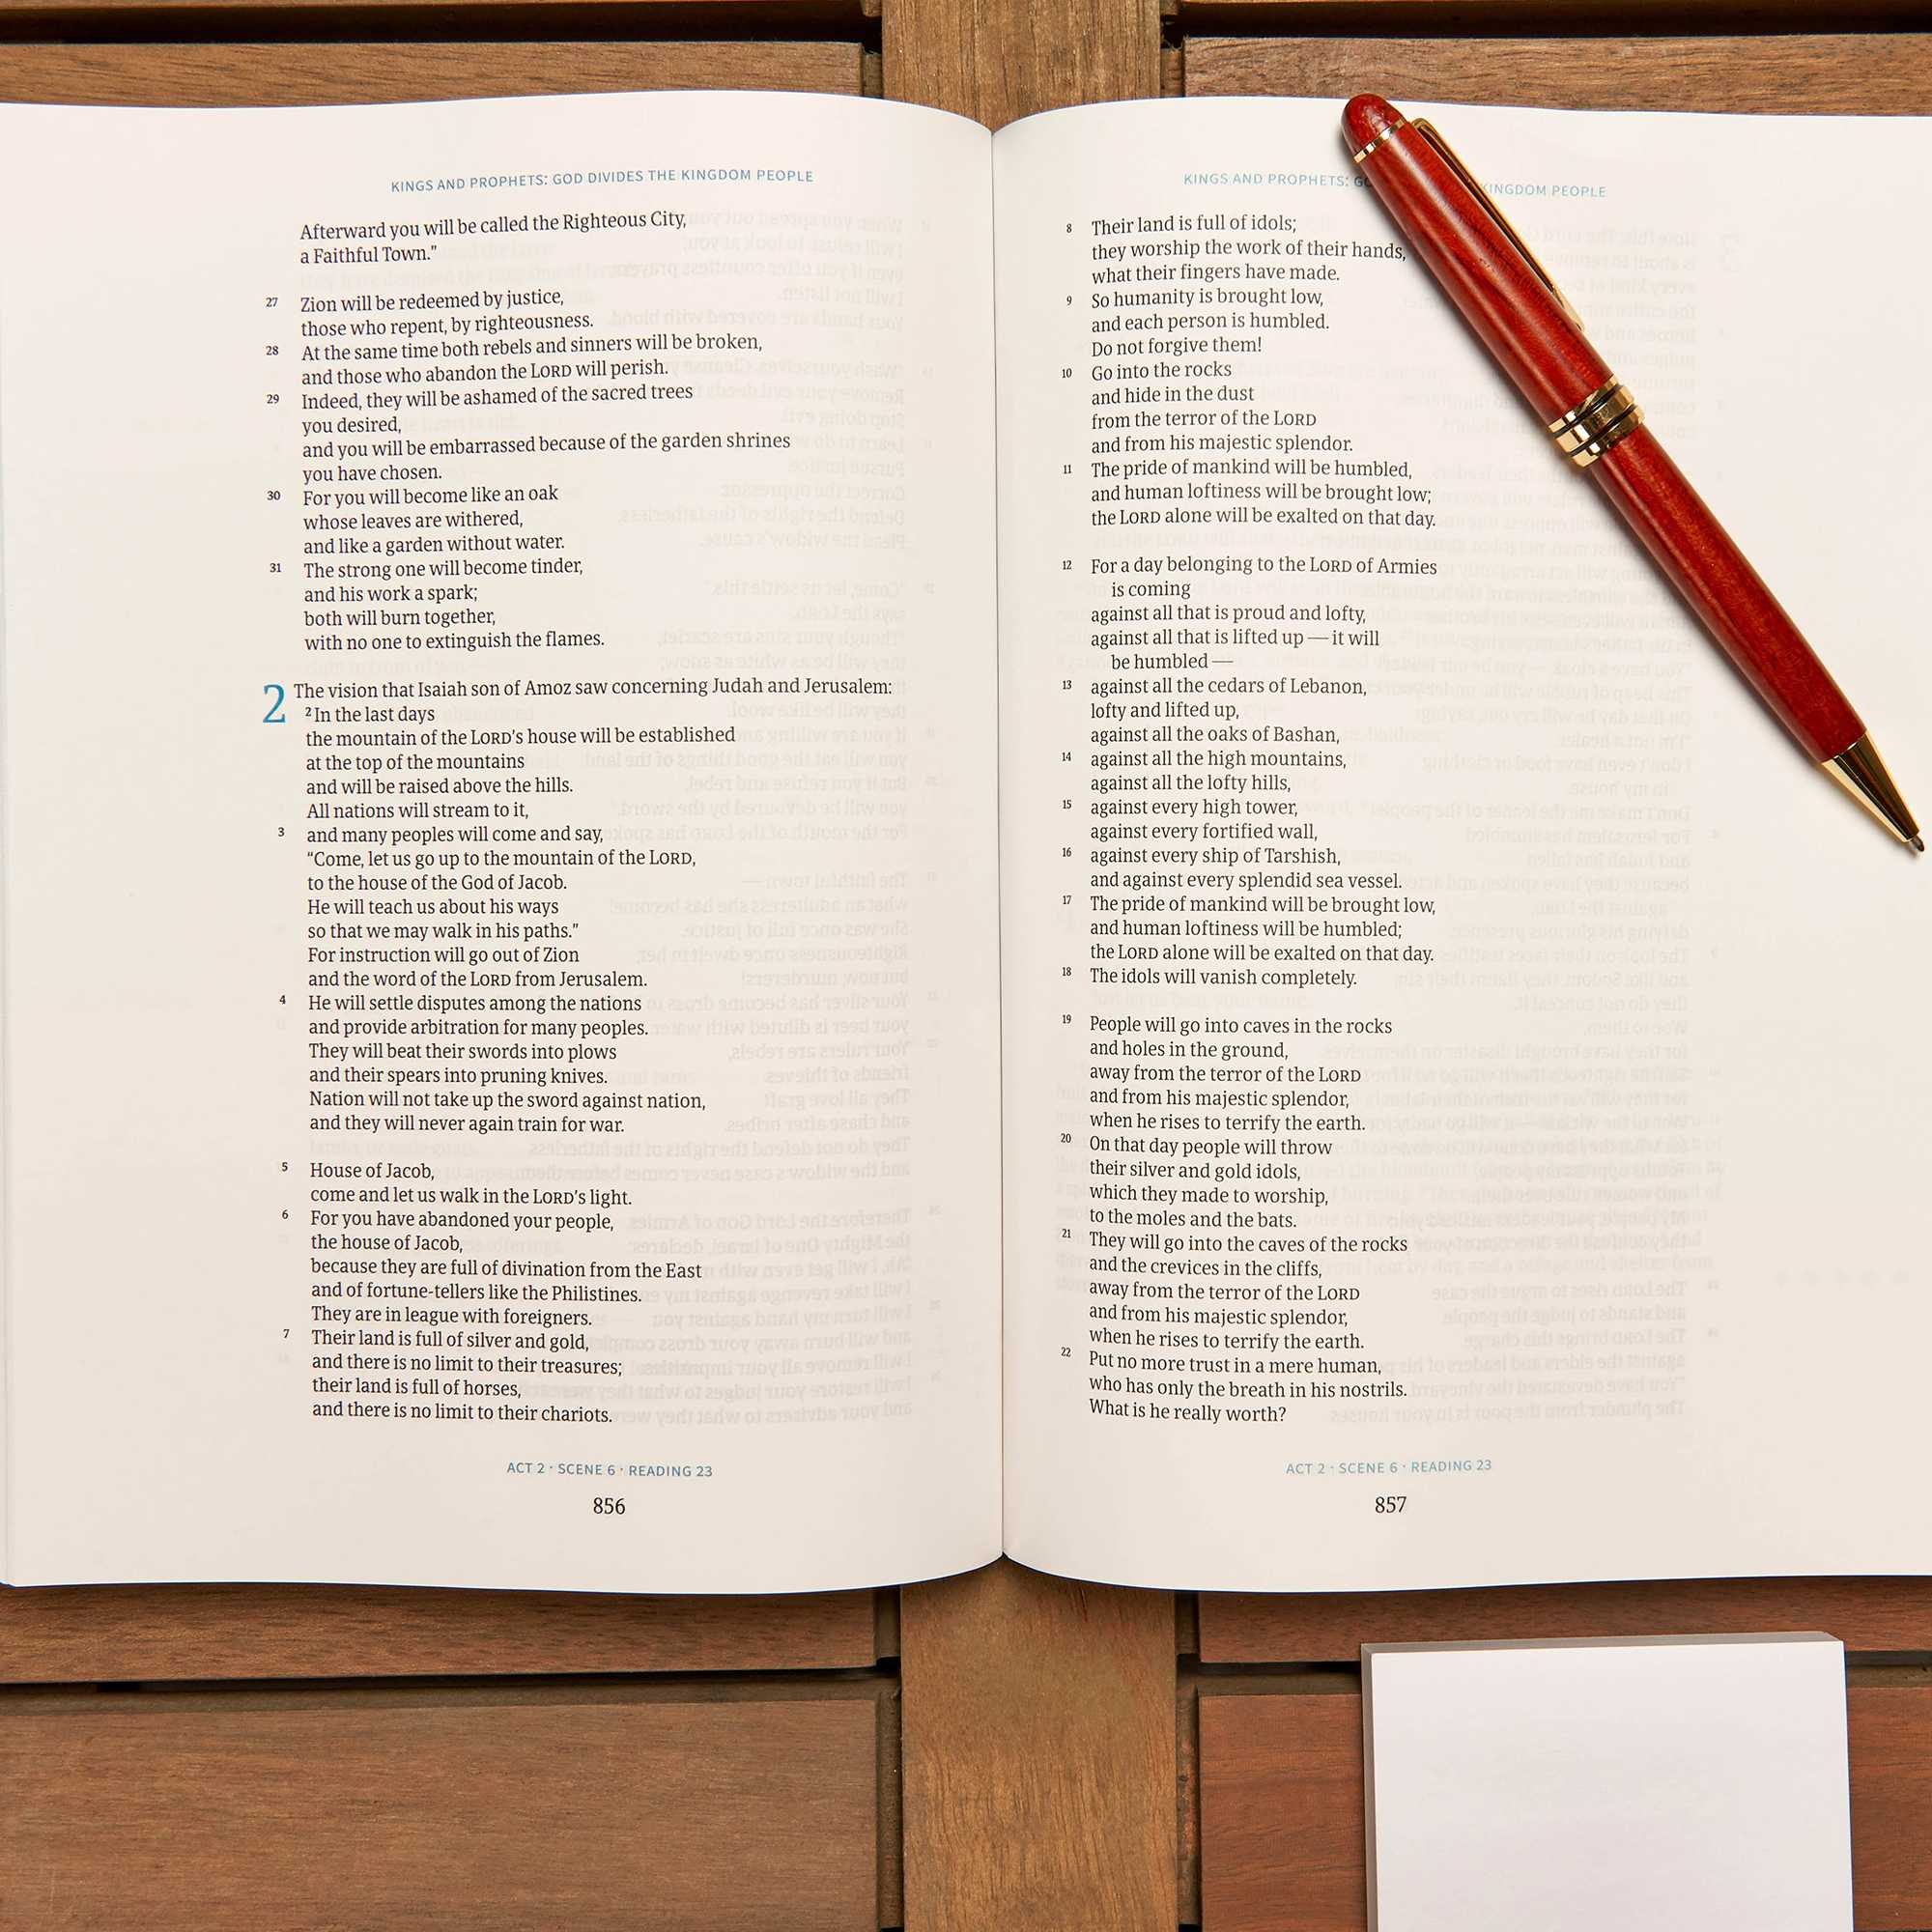 KINGS AND PROPHETS: GOD DIVIDES THE KINGDOM PEOPLE
Afterward you will be called the Righteous City,
a Faithful Town.”
27 Zion will be redeemed by justice,
those who repent, by righteousness.
28 At the same time both rebels and sinners will be broken,
and those who abandon the LORD will perish.
29 Indeed, they will be ashamed of the sacred trees
you desired,
and you will be embarrassed because of the garden shrines
you have chosen.
30 For you will become like an oak
whose leaves are withered,
and like a garden without water.
31 The strong one will become tinder,
and his work a spark;
both will burn together,
with no one to extinguish the flames.
2 The vision that Isaiah son of Amoz saw concerning Judah and Jerusalem:
2 In the last days
the mountain of the LORD’s house will be established
at the top of the mountains
and will be raised above the hills.
All nations will stream to it,
3 and many peoples will come and say,
“Come, let us go up to the mountain of the LORD,
to the house of the God of Jacob.
He will teach us about his ways
so that we may walk in his paths.”
For instruction will go out of Zion
and the word of the LORD from Jerusalem.
4 He will settle disputes among the nations
and provide arbitration for many peoples.
They will beat their swords into plows
and their spears into pruning knives.
Nation will not take up the sword against nation,
and they will never again train for war.
5 House of Jacob,
come and let us walk in the LORD’s light.
6 For you have abandoned your people,
the house of Jacob,
because they are full of divination from the East
and of fortune-tellers like the Philistines.
They are in league with foreigners.
7 Their land is full of silver and gold,
and there is no limit to their treasures;
their land is full of horses,
and there is no limit to their chariots.
ACT 2 · SCENE 6 · READING 23
856
KINGS AND PROPHETS: KINGDOM PEOPLE
8 Their land is full of idols;
they worship the work of their hands,
what their fingers have made.
9 So humanity is brought low,
and each person is humbled.
Do not forgive them!
10 Go into the rocks
and hide in the dust
from the terror of the LORD
and from his majestic splendor.
11 The pride of mankind will be humbled,
and human loftiness will be brought low;
the LORD alone will be exalted on that day.
12 For a day belonging to the LORD of Armies
is coming
against all that is proud and lofty,
against all that is lifted up — it will
be humbled —
13 against all the cedars of Lebanon,
lofty and lifted up,
against all the oaks of Bashan,
14 against all the high mountains,
against all the lofty hills,
15 against every high tower,
against every fortified wall,
16 against every ship of Tarshish,
and against every splendid sea vessel.
17 The pride of mankind will be brought low,
and human loftiness will be humbled;
the LORD alone will be exalted on that day.
18 The idols will vanish completely.
19 People will go into caves in the rocks
and holes in the ground,
away from the terror of the LORD
and from his majestic splendor,
when he rises to terrify the earth.
20 On that day people will throw
their silver and gold idols,
which they made to worship,
to the moles and the bats.
21 They will go into the caves of the rocks
and the crevices in the cliffs,
away from the terror of the LORD
and from his majestic splendor,
when he rises to terrify the earth.
22 Put no more trust in a mere human,
who has only the breath in his nostrils.
What is he really worth?
ACT 2 · SCENE 6 · READING 23
857